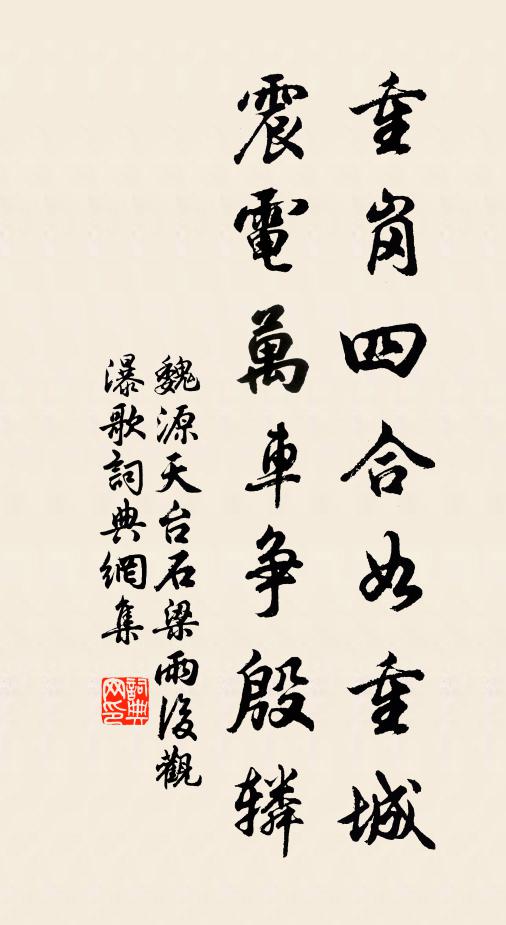 重崗四合如重城
震電萬車争殷轔
魏源天台石梁雨後觀
瀑歌詞典網集
詞典
网印